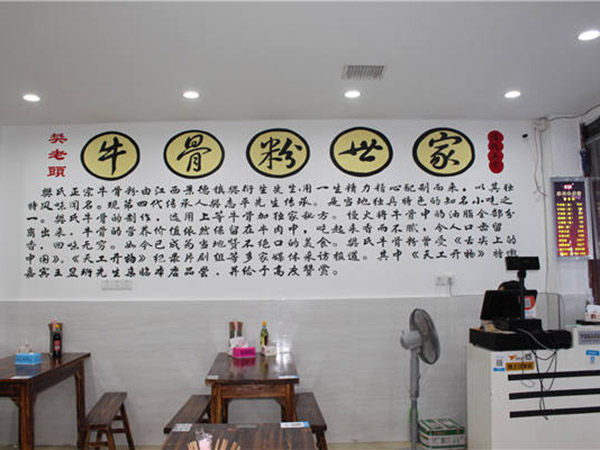 樊老頭
牛骨粉世家
樊氏正宗牛骨粉由江西景德镇樊衍生先生,用一生精力精心配制而来,以其独
特风味闻名。现第四代传承人樊志平先生传承。是当地独具特色的知名小吃之
一。樊氏牛骨的制作,选用上等牛骨加独家秘方。慢火将牛骨中的油脂全部分
离出来,牛骨的营养价值依然保留在牛肉中,吃起来香而不腻,令人口舌留
香,回味无穷。如今已成为当地赞不绝口的美食。樊氏牛骨粉曾受《舌尖上的
中国》,《天工开物》纪录片剧组等多家媒体采访报道。其中《天工开物》特邀
嘉宾王昱珩先生亲临本店品尝,并给予高度赞赏。